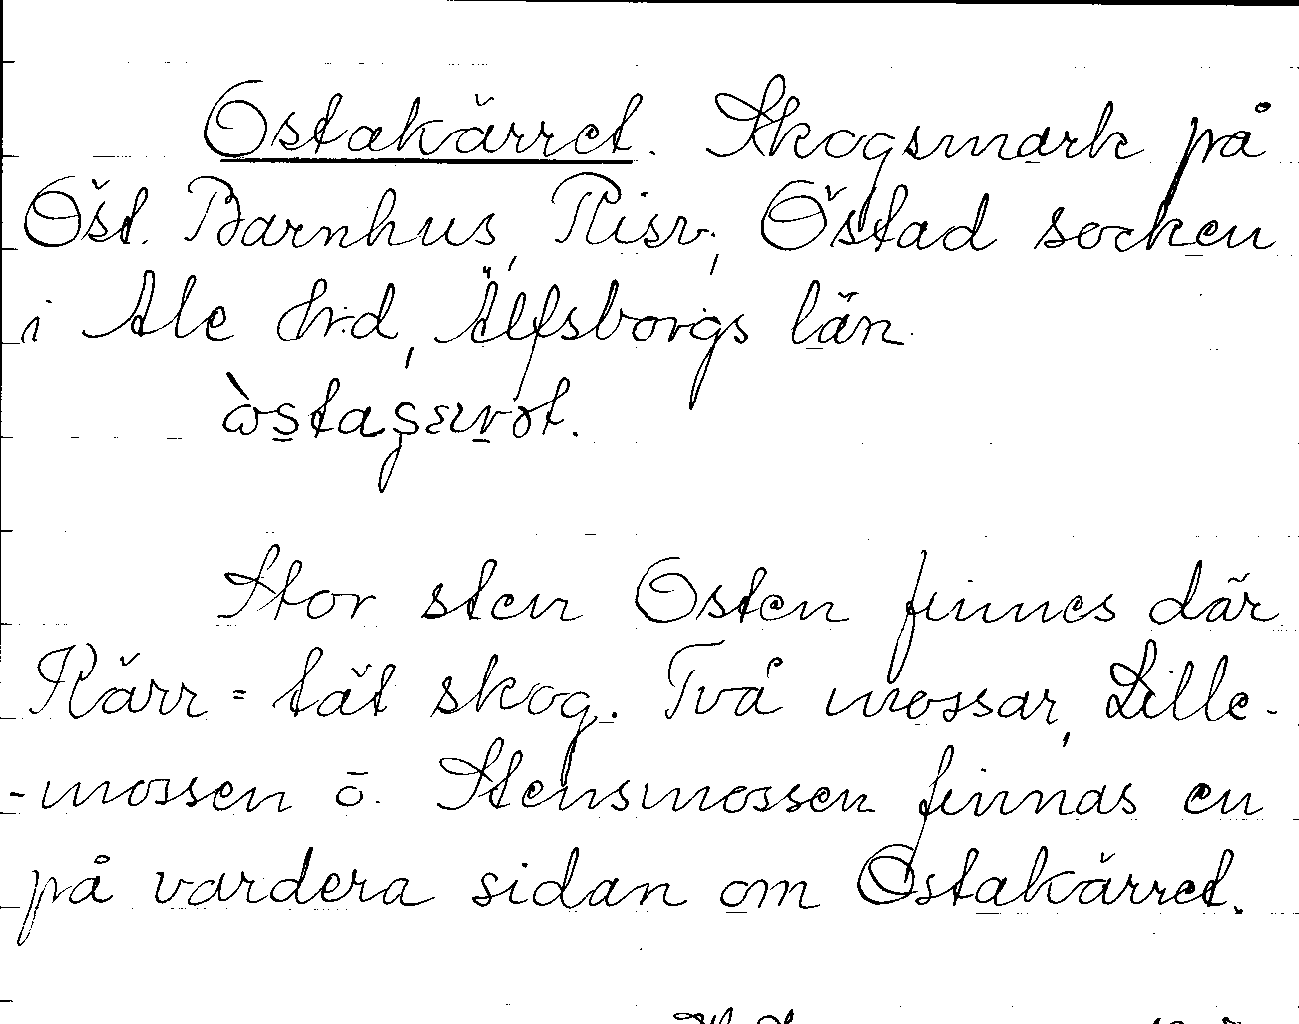 Ostakärret. Skogsmark på
Öst. Barnhus, Risv., Östad socken
i Ale hrd, Älfsborgs län.
Stor sten Osten finnes där
Kärr = tät skog. Två mossar, Lille-
-mossen o. Stensmossen finnas en
på vardera sidan om Ostakärret.